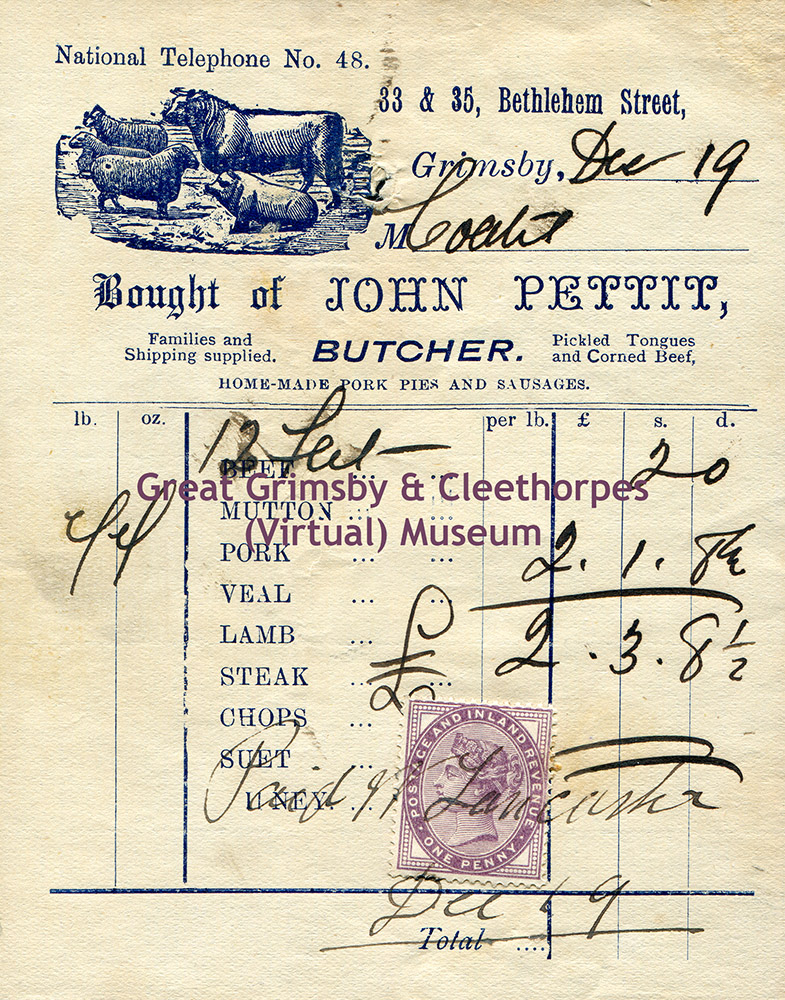 National Telephone No. 48.
33 & 35, Bethlehem Street,
Grimsby, Dec 19
M
Bought of JOHN PETTIT,
Families and Shipping supplied.
BUTCHER.
Pickled Tongues and Corned Beef,
HOME-MADE PORK PIES AND SAUSAGES.
lb. oz. per lb. £ s. d.
12 Feet
BEEF ... ... 2 0
Great Grimsby & Cleethorpes
(Virtual) Museum
MUTTON ... ...
PORK ... ... 2. 1. 8½
VEAL ... ...
LAMB ... £ 2. 3. 8½
STEAK ... ...
CHOPS ...
SUET ...
Paid Lancaster
POSTAGE AND INLAND REVENUE
ONE PENNY
Dec 19
Total ....